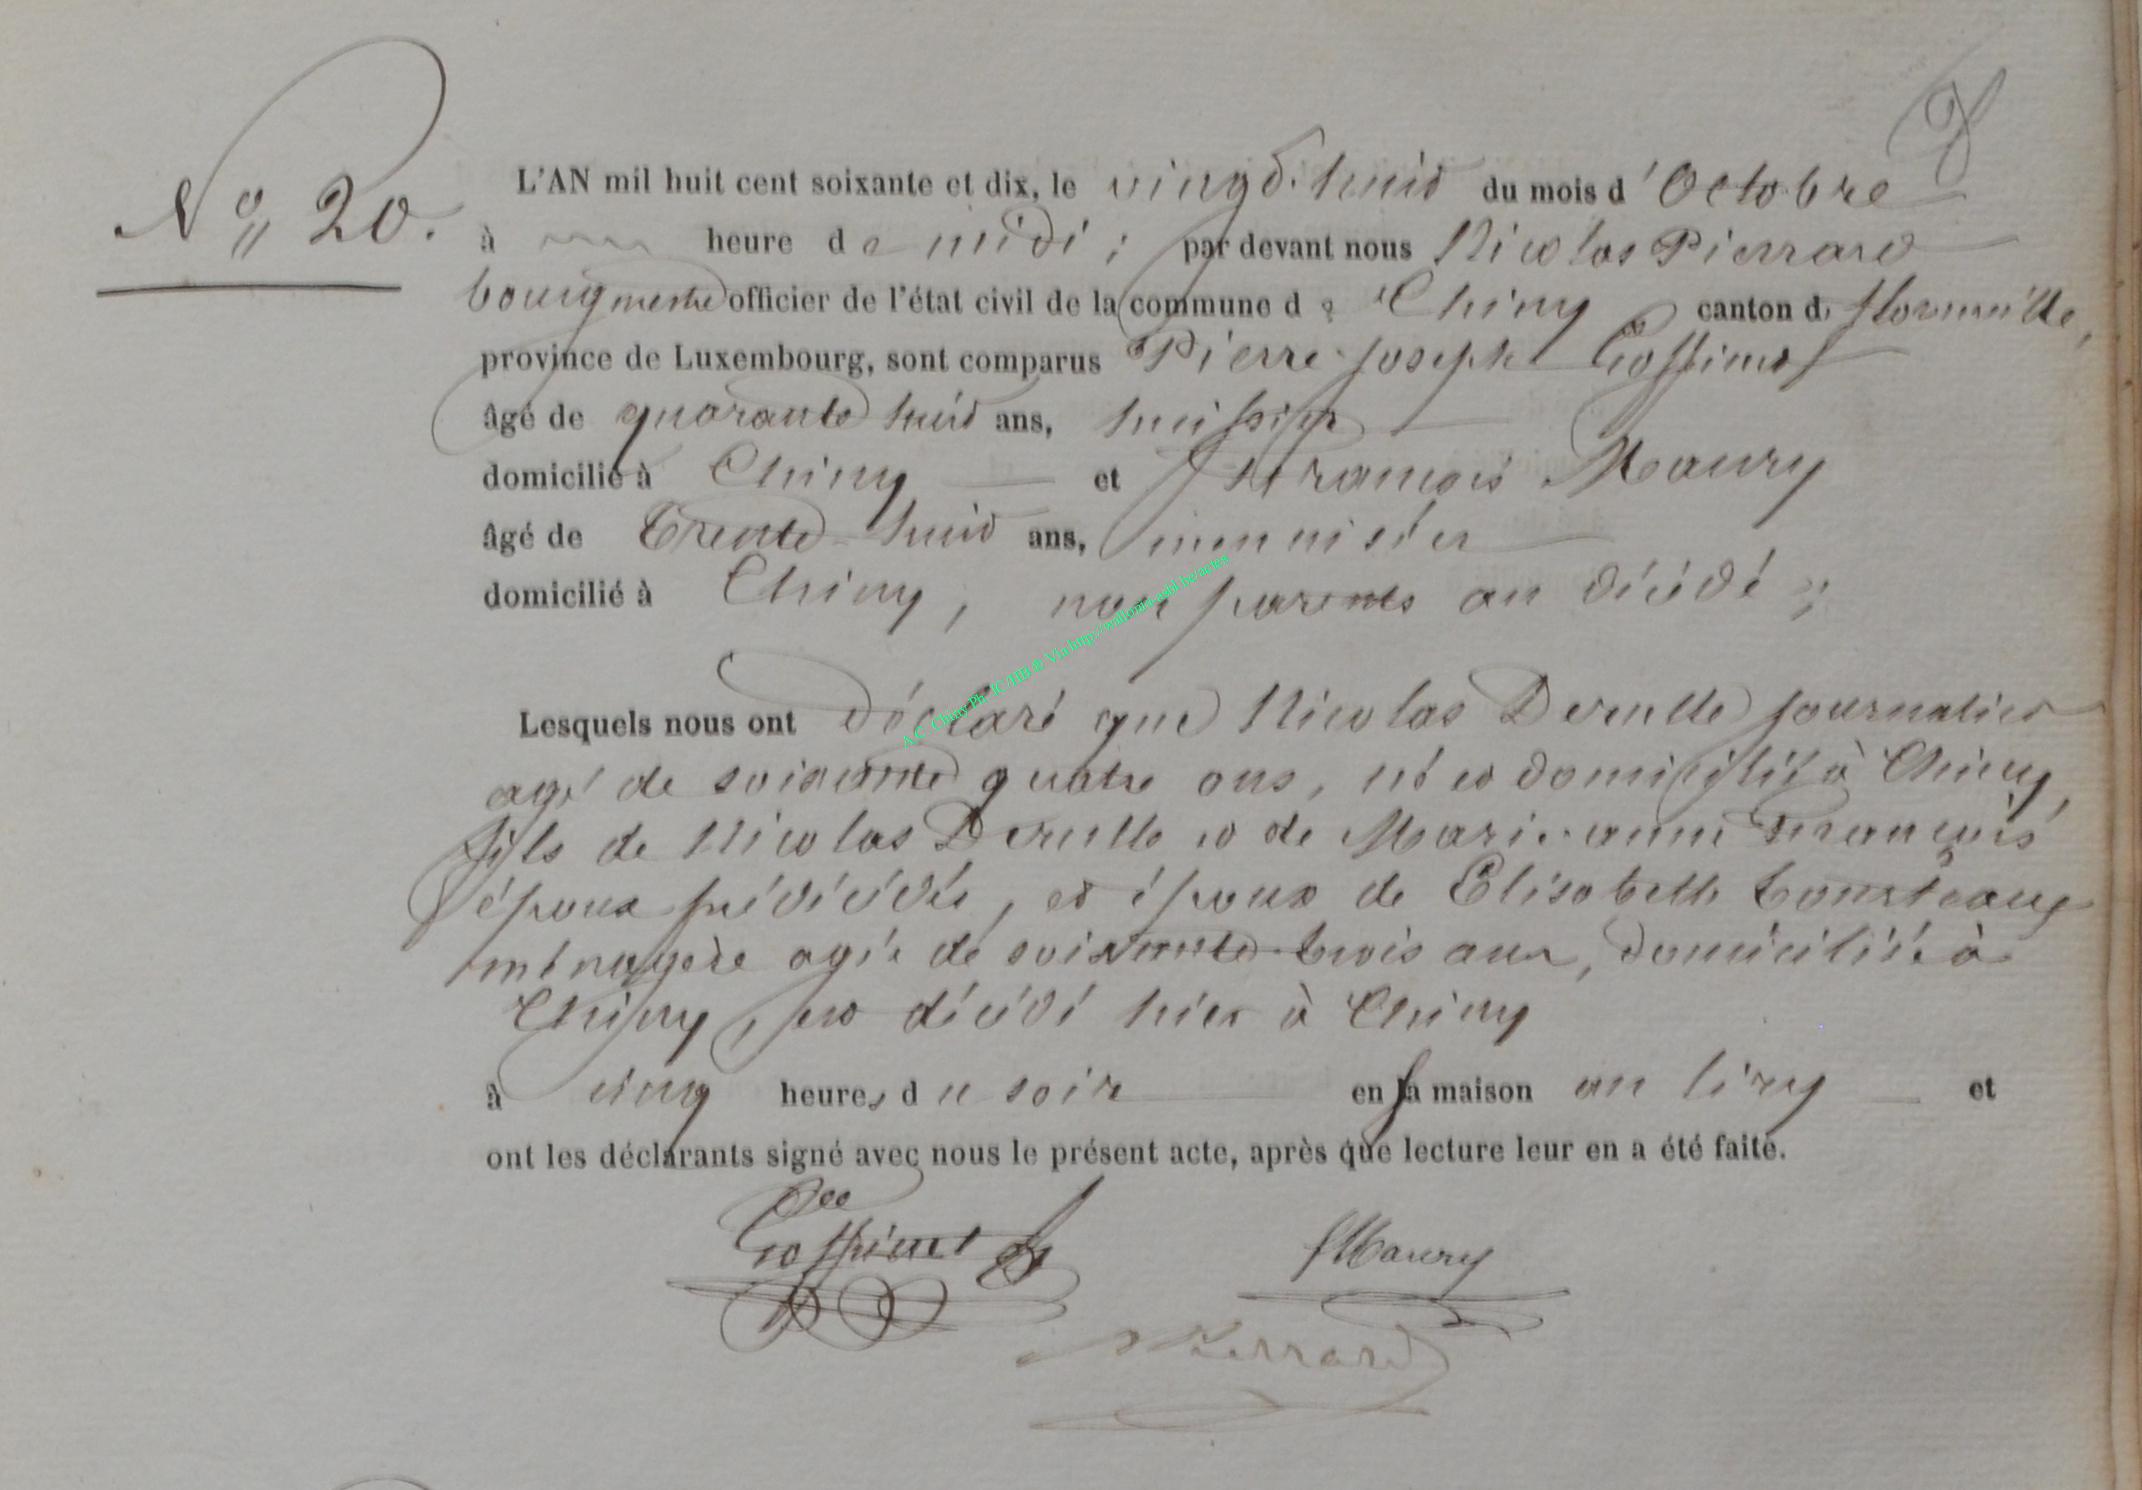 N° 20.
L'AN mil huit cent soixante et dix, le vingt-huit du mois d'Octobre
à une heure de midi; par devant nous Nicolas Pierrard
bourgmestre officier de l'état civil de la commune de Chiny canton de florenville,
province de Luxembourg, sont comparus Pierre Joseph Goffinet
âgé de quarante huit ans, huissier
domicilié à Chiny et François Maury
âgé de Trente-huit ans, menuisier
domicilié à Chiny, non parents au décédé;
Lesquels nous ont déclaré que Nicolas Derulle journalier
agé de soixante quatre ans, né et domicilié à Chiny,
fils de Nicolas Derulle et de Marie-anne François
époux prédécédés, et époux de Elisabeth
ménagère agée de soixante-trois ans, domiciliée à
Chiny, est décédé hier à Chiny
à cinq heures du soir en sa maison et
ont les déclarants signé avec nous le présent acte, après que lecture leur en a été faite.
Goffinet
fMaury
Pierrard
A.C. Chiny Ph. JC/HB & Via http://wallonia-asbl.be/actes